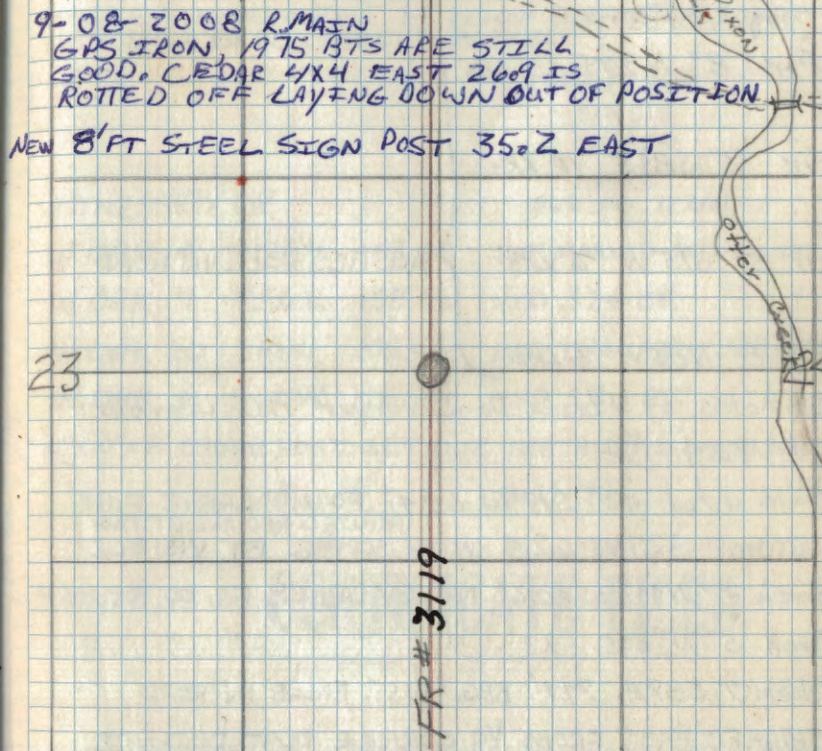 9-08-2008 R.MAIN
GPS IRON, 1975 BTS ARE STILL
GOOD. CEDAR 4X4 EAST 26.9 IS
ROTTED OFF LAYING DOWN OUT OF POSITION
NEW 8'FT STEEL SIGN POST 35.2 EAST
otter creek
23
FR# 3119